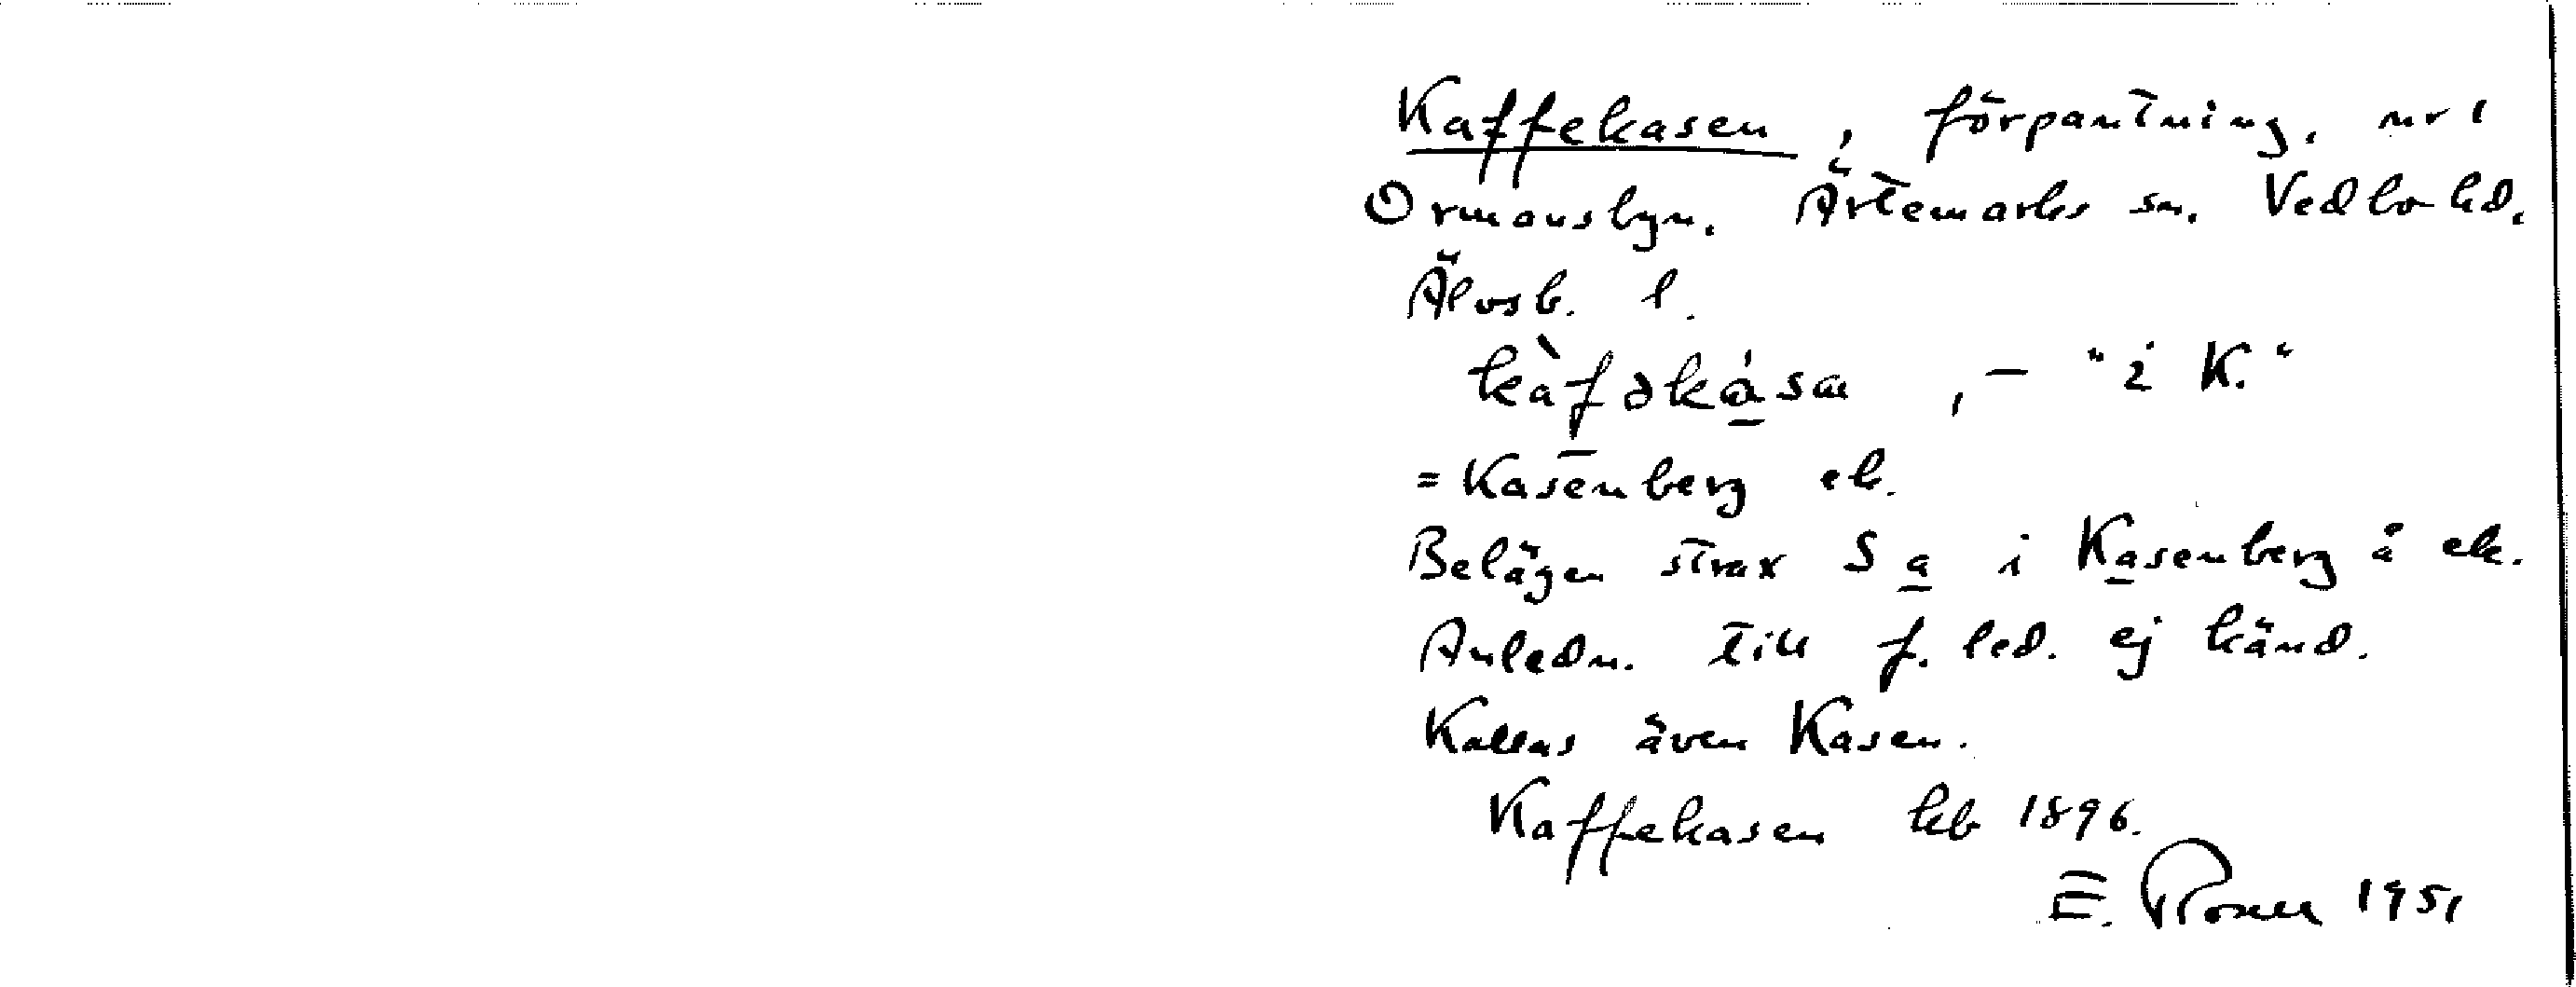 Kaffekasen, förpantning, nr 1
Ormansbyn. Ärtemarks sn. Vedbo hd.
Älvsb. l.
kàfəká̱sa ,– "i K."
= Kasenberg ek.
Belägen strax S a̱ i Ka̱senberg å ek.
Anledn. till f. led. ej känd.
Kallas även Kasen.
Kaffekasen kb 1896.
E. Rosell 1951